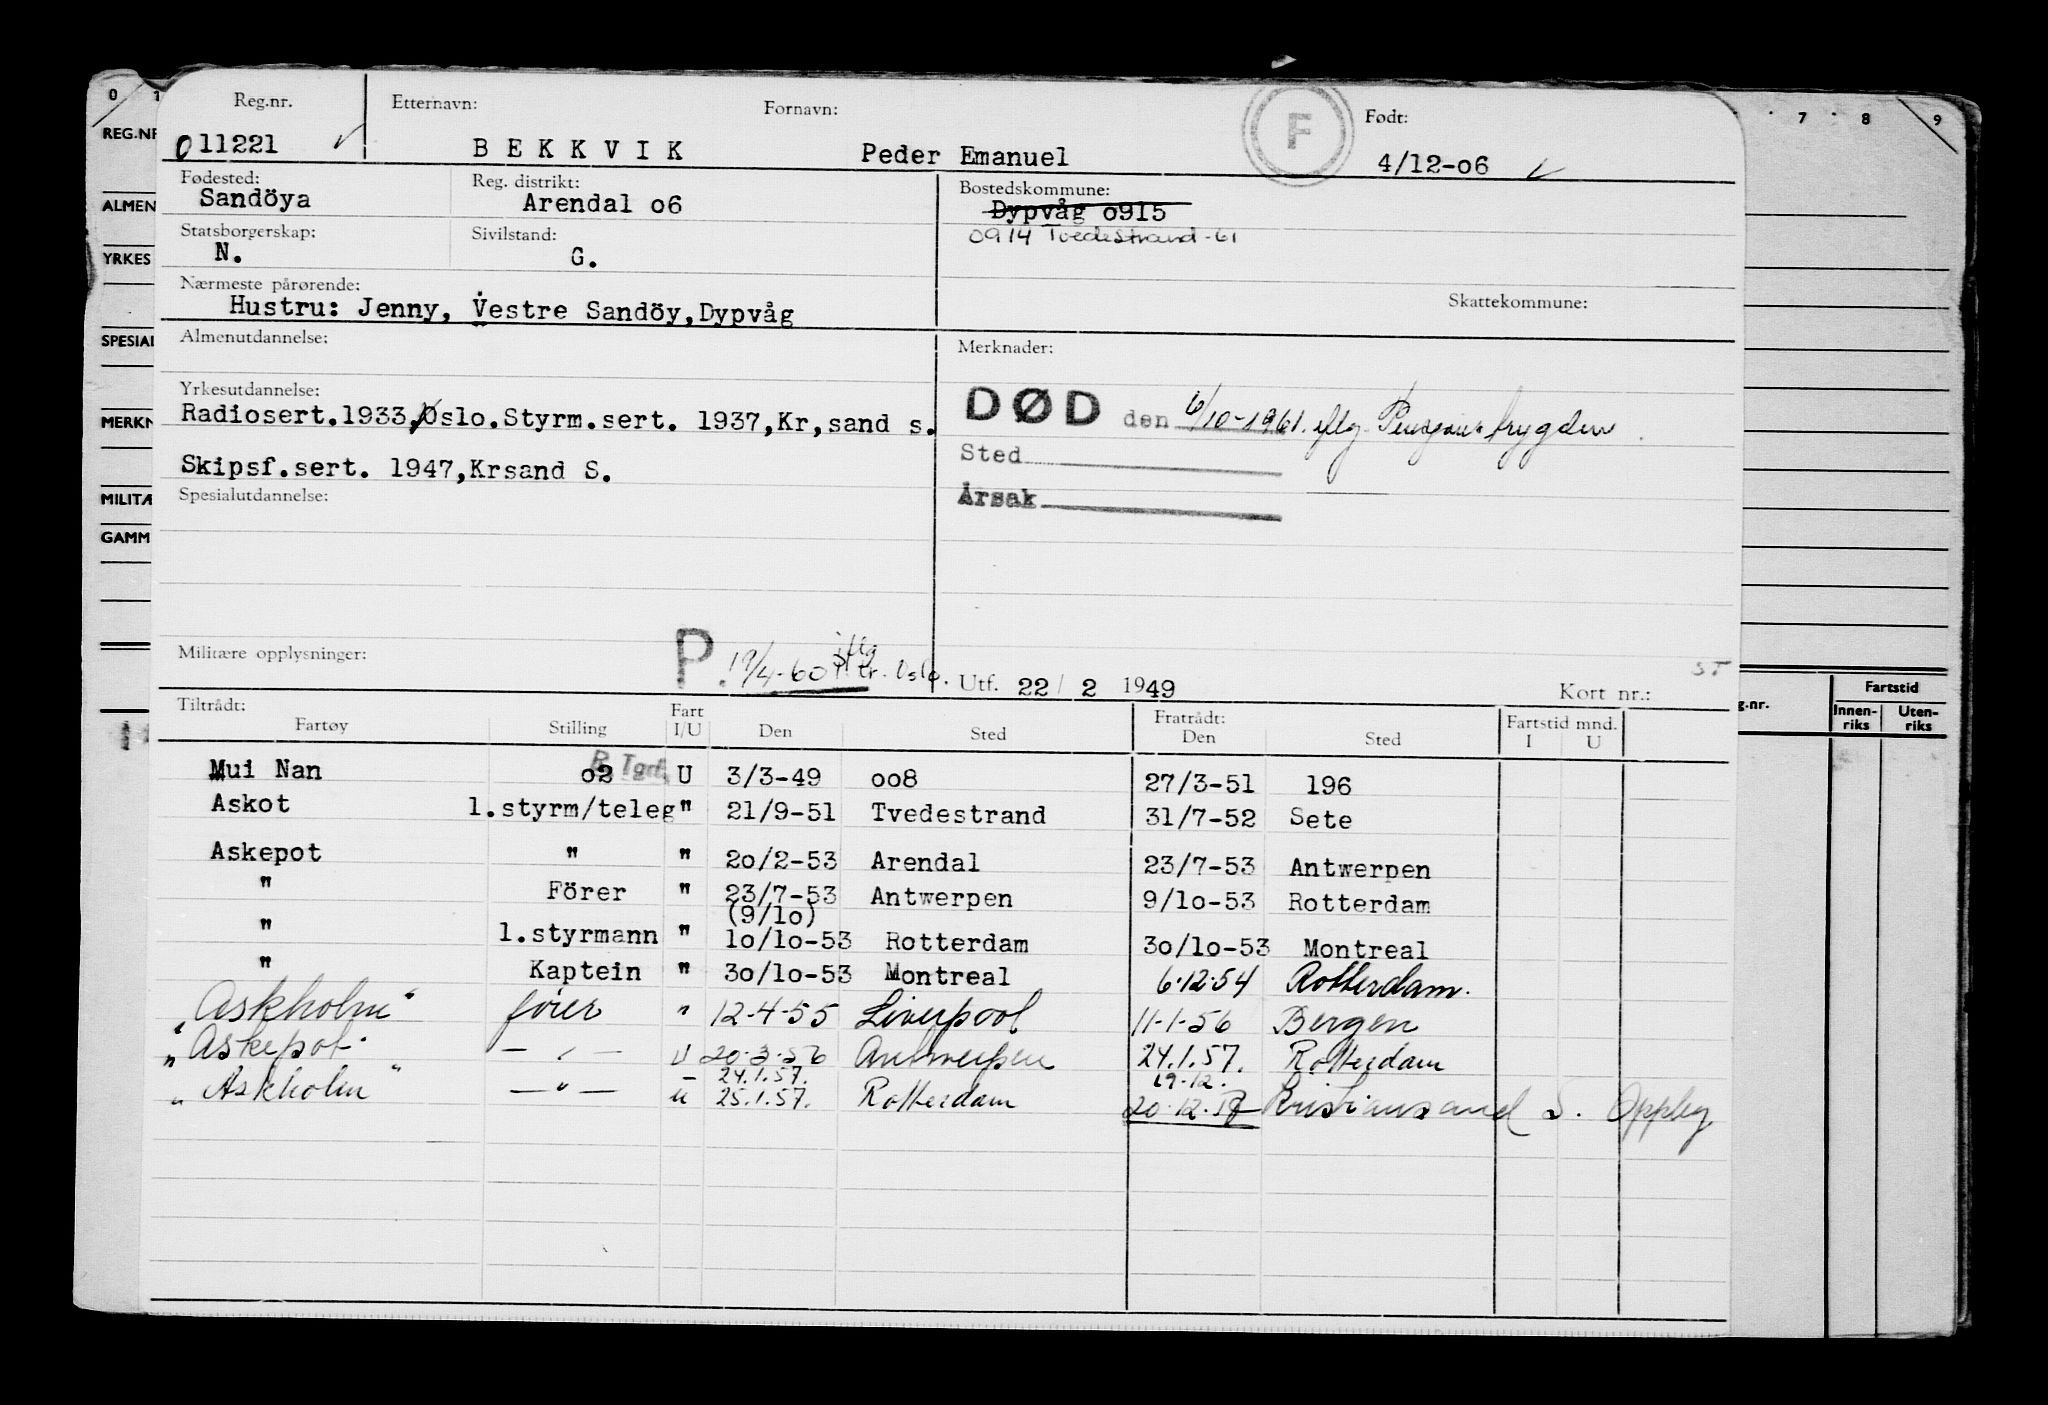 0 1 7 8 9
REG.NR
ALMEN
YRKES
SPESIAL
MERKN
MILITÆ
GAMM
Reg.nr. Etternavn: Fornavn: F Født:
011221 BEKKVIK Peder Emanuel 4/12-06
Fødested: Reg. distrikt: Bostedskommune:
Sandöya Arendal o6 Dypvåg o915
Statsborgerskap: Sivilstand: 0914 Tvedestrand-61
N. G.
Nærmeste pårørende: Skattekommune:
Hustru: Jenny, Vestre Sandöy,Dypvåg
Almenutdannelse: Merknader:
Yrkesutdannelse:
Radiosert.1933,Oslo.Styrm.sert. 1937,Kr,sand s. DØD den 6/10-1961. iflg. Pensjons trygden
Sted
Skipsf.sert. 1947,Krsand S.
Spesialutdannelse: Årsak
Militære opplysninger: P. 19/4-60 iflg tr. Oslo. Utf. 22 / 2 1949 Kort nr.: ST
Tiltrådt: Fartøy Stilling Fart I/U Den Sted Fratrådt: Den Sted Fartstid mnd. I U
g.nr. Fartstid Innen-riks Uten-riks
Mui Nan o2 R Tgrf. U 3/3-49 oo8 27/3-51 196
Askot 1.styrm/teleg " 21/9-51 Tvedestrand 31/7-52 Sete
Askepot " " 20/2-53 Arendal 23/7-53 Antwerpen
" Förer " 23/7-53 Antwerpen 9/10-53 Rotterdam
(9/10)
" 1.styrmann " 10/10-53 Rotterdam 30/10-53 Montreal
" Kaptein " 30/10-53 Montreal 6.12.54 Rotterdam.
"Askholm" fører " 12-4-55 Liverpool 11-1-56 Bergen
"Askepot" — " — U 20-3-56 Antwerpen 24.1.57. Rotterdam
24.1.57. 19-12.
"Askholm" — " — U 25.1.57. Rotterdam 20.12.57 Kristiansand S. Oppby